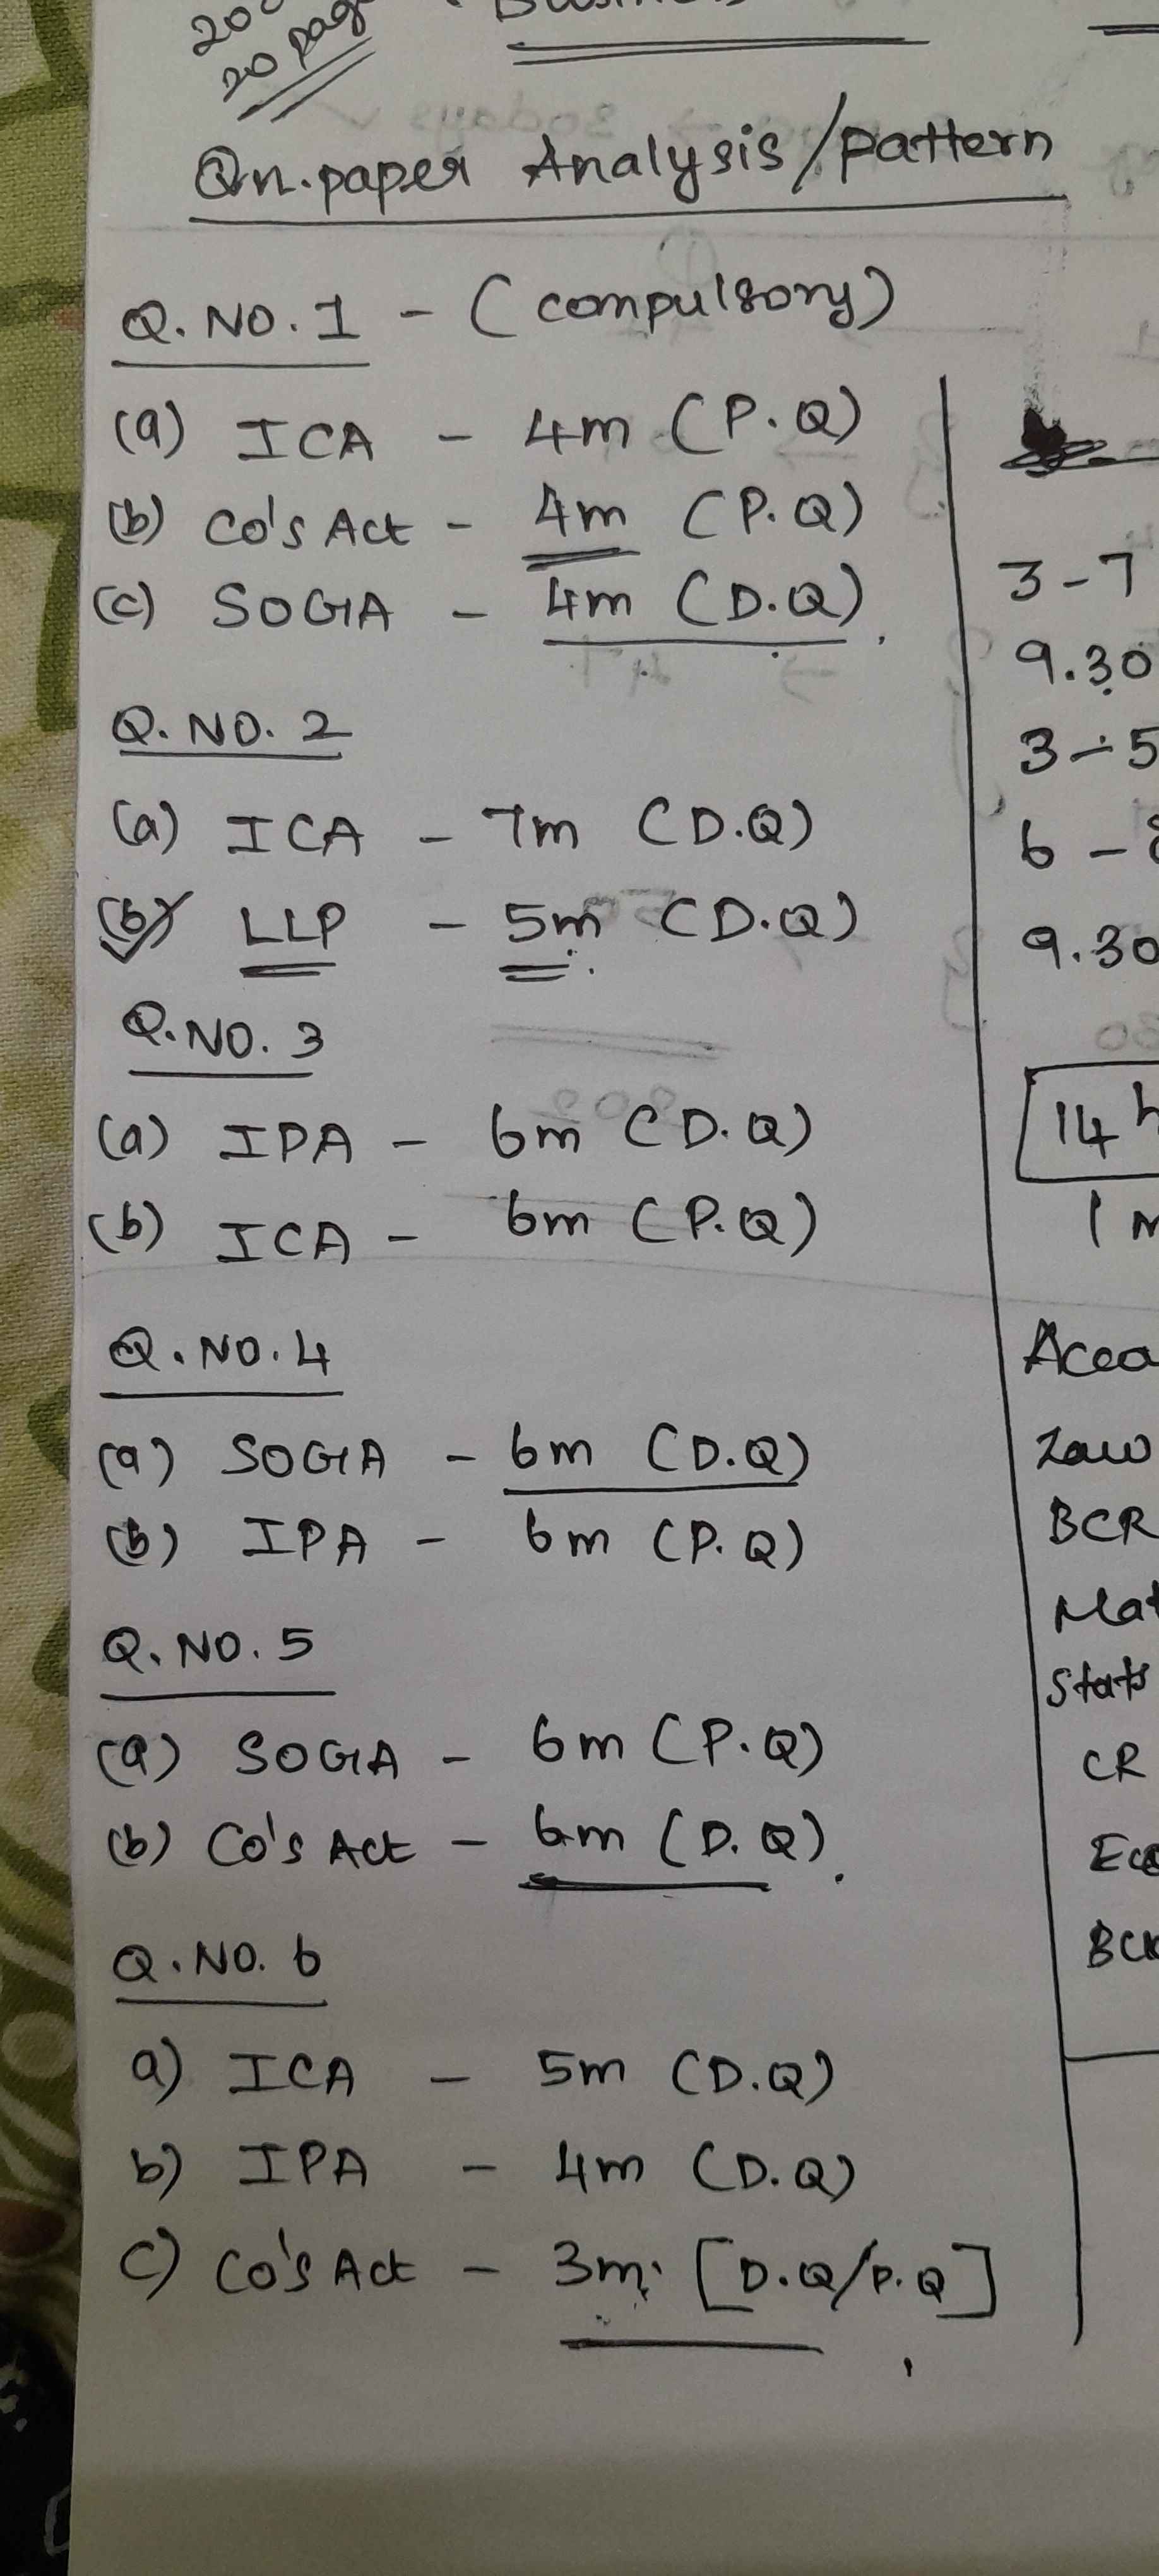 20 pag
Qn.paper Analysis/pattern
Q. NO. 1 - (compulsory)
(a) ICA - 4m (P.Q)
(b) Co's Act - 4m (P.Q)
(c) SOGA - 4m (D.Q).
Q. NO. 2
(a) ICA - 7m (D.Q)
(b) LLP - 5m (D.Q)
Q. NO. 3
(a) IPA - 6m (D.Q)
(b) ICA - 6m (P.Q)
Q. NO. 4
(a) SOGA - 6m (D.Q)
(b) IPA - 6m (P.Q)
Q. NO. 5
(a) SOGA - 6m (P.Q)
(b) Co's Act - 6m (D.Q).
Q. NO. 6
a) ICA - 5m (D.Q)
b) IPA - 4m (D.Q)
c) Co's Act - 3m [D.Q/P.Q]
3-7
9.30
3-5
6 -
9.30
14 h
1
Law
BCR
Mat
Stats
CR
Eco
BCK